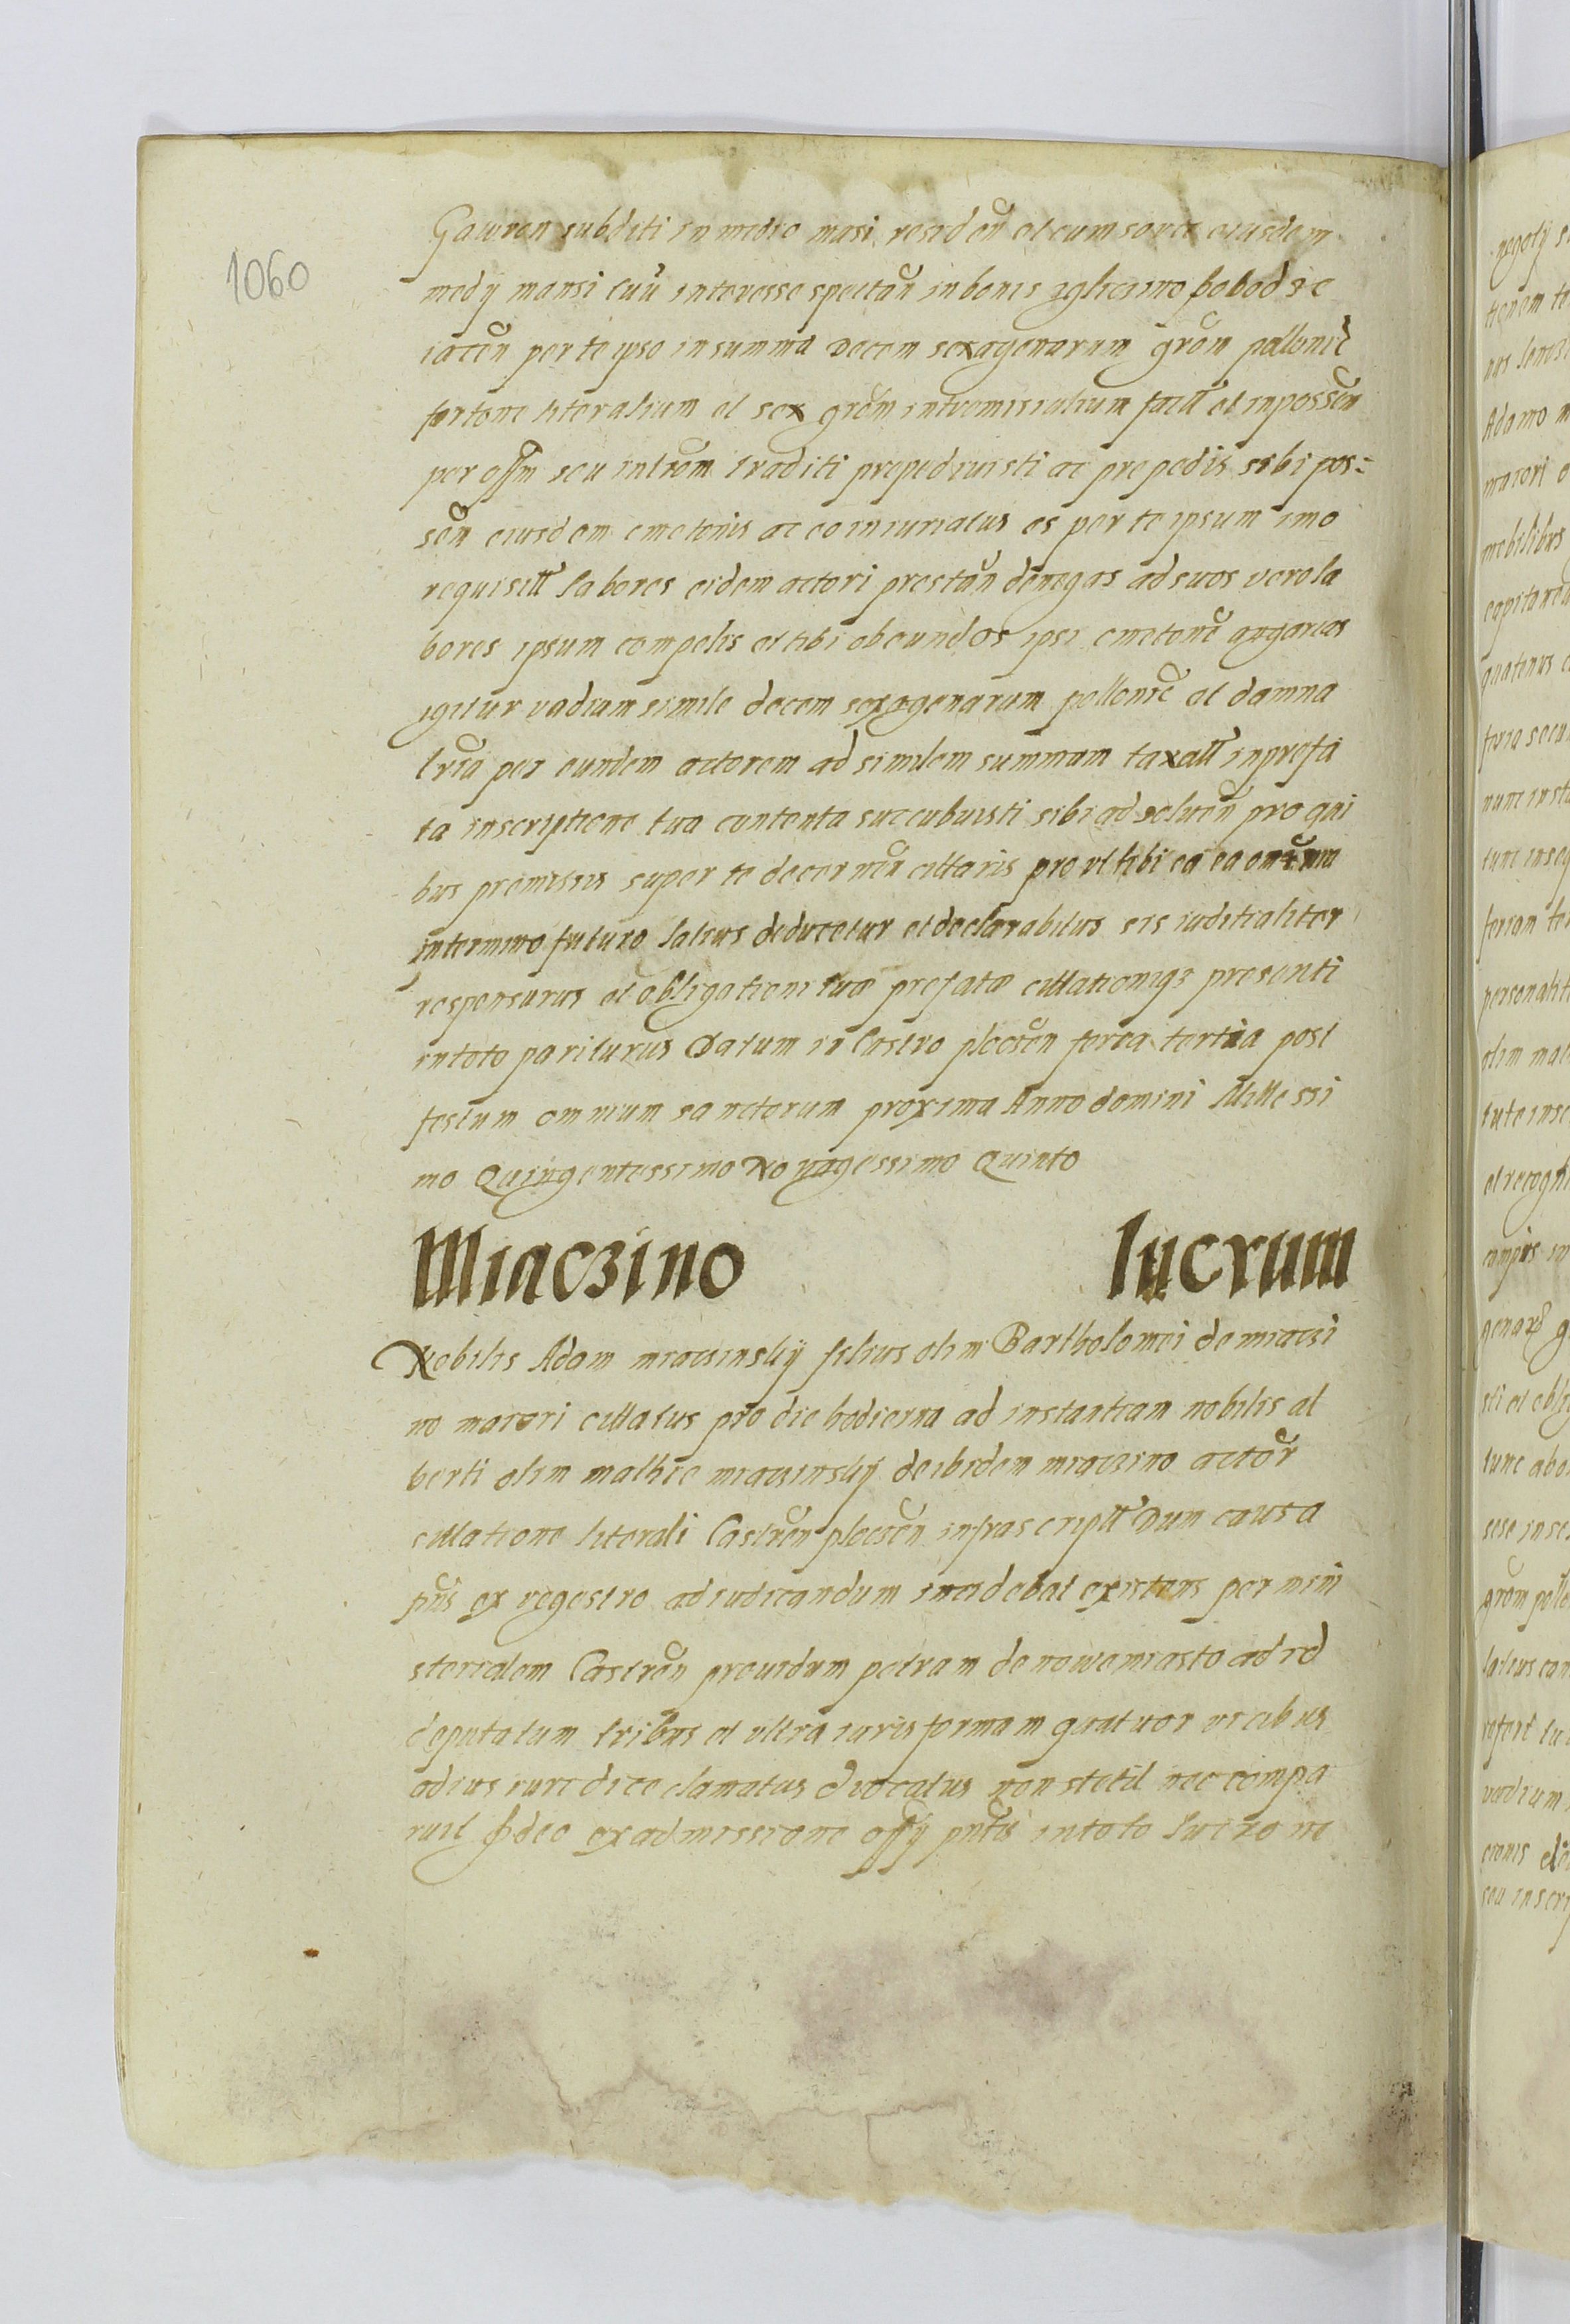 1060
Gawron subditi in medio mansi residen̄ et cum sorte eiusdem
medij mansi cuū interesse spectan̄ in bonis zglieczino
iacen̄ per te ipso in summa decem sexagenarum gron̄ pollonic̄
fertone literalium et sex grom̄ intromisialium fact̄ et in possen̄
per offm̄ seu introm̄ traditi prepediuisti ac prepedis sibi pos=
sen̄ eiusdem cmetonis ac eo iniuriatus es per te ipsum imo
requisitt̄ labores eidem actori prestan̄ denegas ad suos vero la
bores ipsum compelis et tibi obeundos ipsi cmetone angarias
igitur vadium simile decem sexagenarum pollonic̄ et damna
tria per eundem actorem ad similem summam taxatt̄ in prefa
ta inscriptione tua contenta succubuisti sibi ad soluen̄ pro qui
bus premissis super te decernen̄ cittaris prout tibi ea ea omnium
in termino futuro latius deducetur et declarabitur sis iuditialiter
responsurus et obligationi tuæ prefatæ cittationiqz presenti
in toto pariturus Datum in Castro plocen̄ feria tertia post
festum omnium sanctorum proxima Anno domini Millessi
mo Quingentessimo Nonagessimo Quinto
Miaczino lucrum
Nobilis Adam miaczinskij filius olim Bartholomei de miaczi
no maiori cittatus pro die hodierna ad instantiam nobilis al
berti olim mathie miaczinskij de ibidem miaczino actor̄
cittatione literali Castren̄ plocen̄ infrascriptt̄ Dum causa
pn̄s ex regestro ad iudicandum incidebat existens per mini
sterialem Castren̄ prouidum petram de nowemiasto ad id
deputatum tribus et vltra iuris formam quatuor vicibus
ad ius iuredice clamatus euocatus non stetit nec compa
ruit Ideo ex admissione offij pn̄tis in toto lucro ne